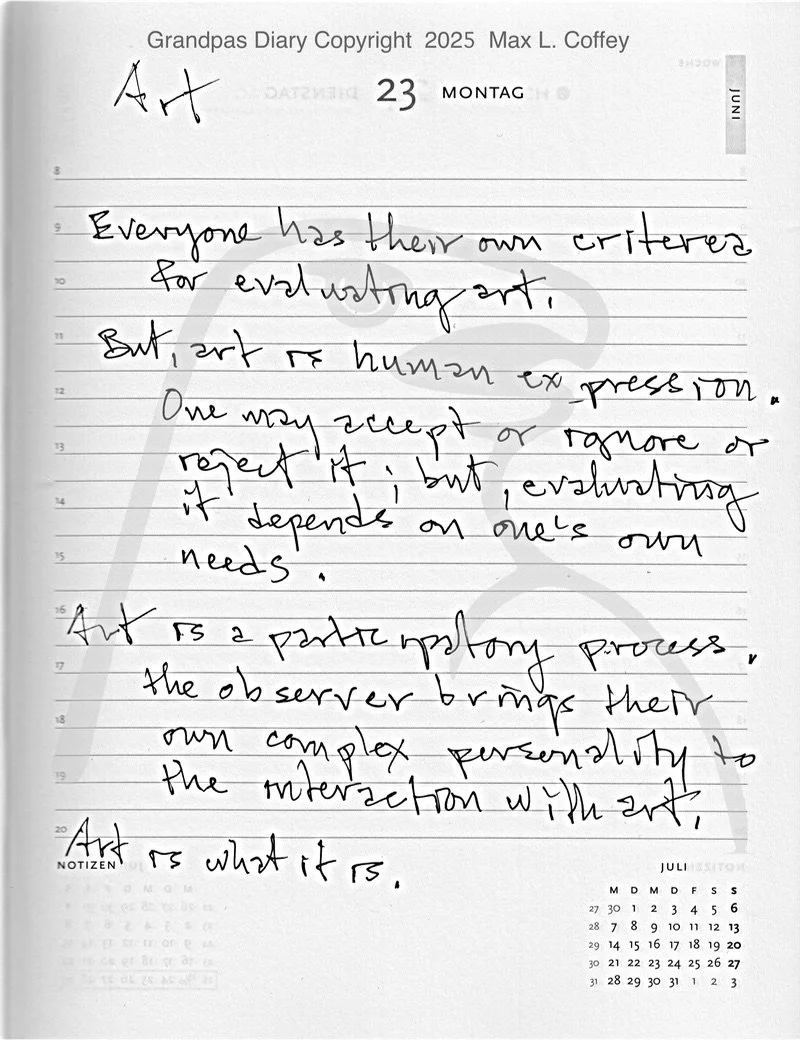 Grandpas Diary Copyright 2025 Max L. Coffey
Art
23 MONTAG
JUNI
8
Everyone has their own criterea
9
for evaluating art.
10
But, art is human expression.
11
12
One may accept or ignore or
13
reject it; but, evaluating
14
it depends on one's own
15
needs.
16
Art is a participatory process.
17
the observer brings their
18
own complex personality to
19
the interaction with art.
20
Art is what it is.
NOTIZEN
JULI
M D M D F S S
27 30 1 2 3 4 5 6
28 7 8 9 10 11 12 13
29 14 15 16 17 18 19 20
30 21 22 23 24 25 26 27
31 28 29 30 31 1 2 3